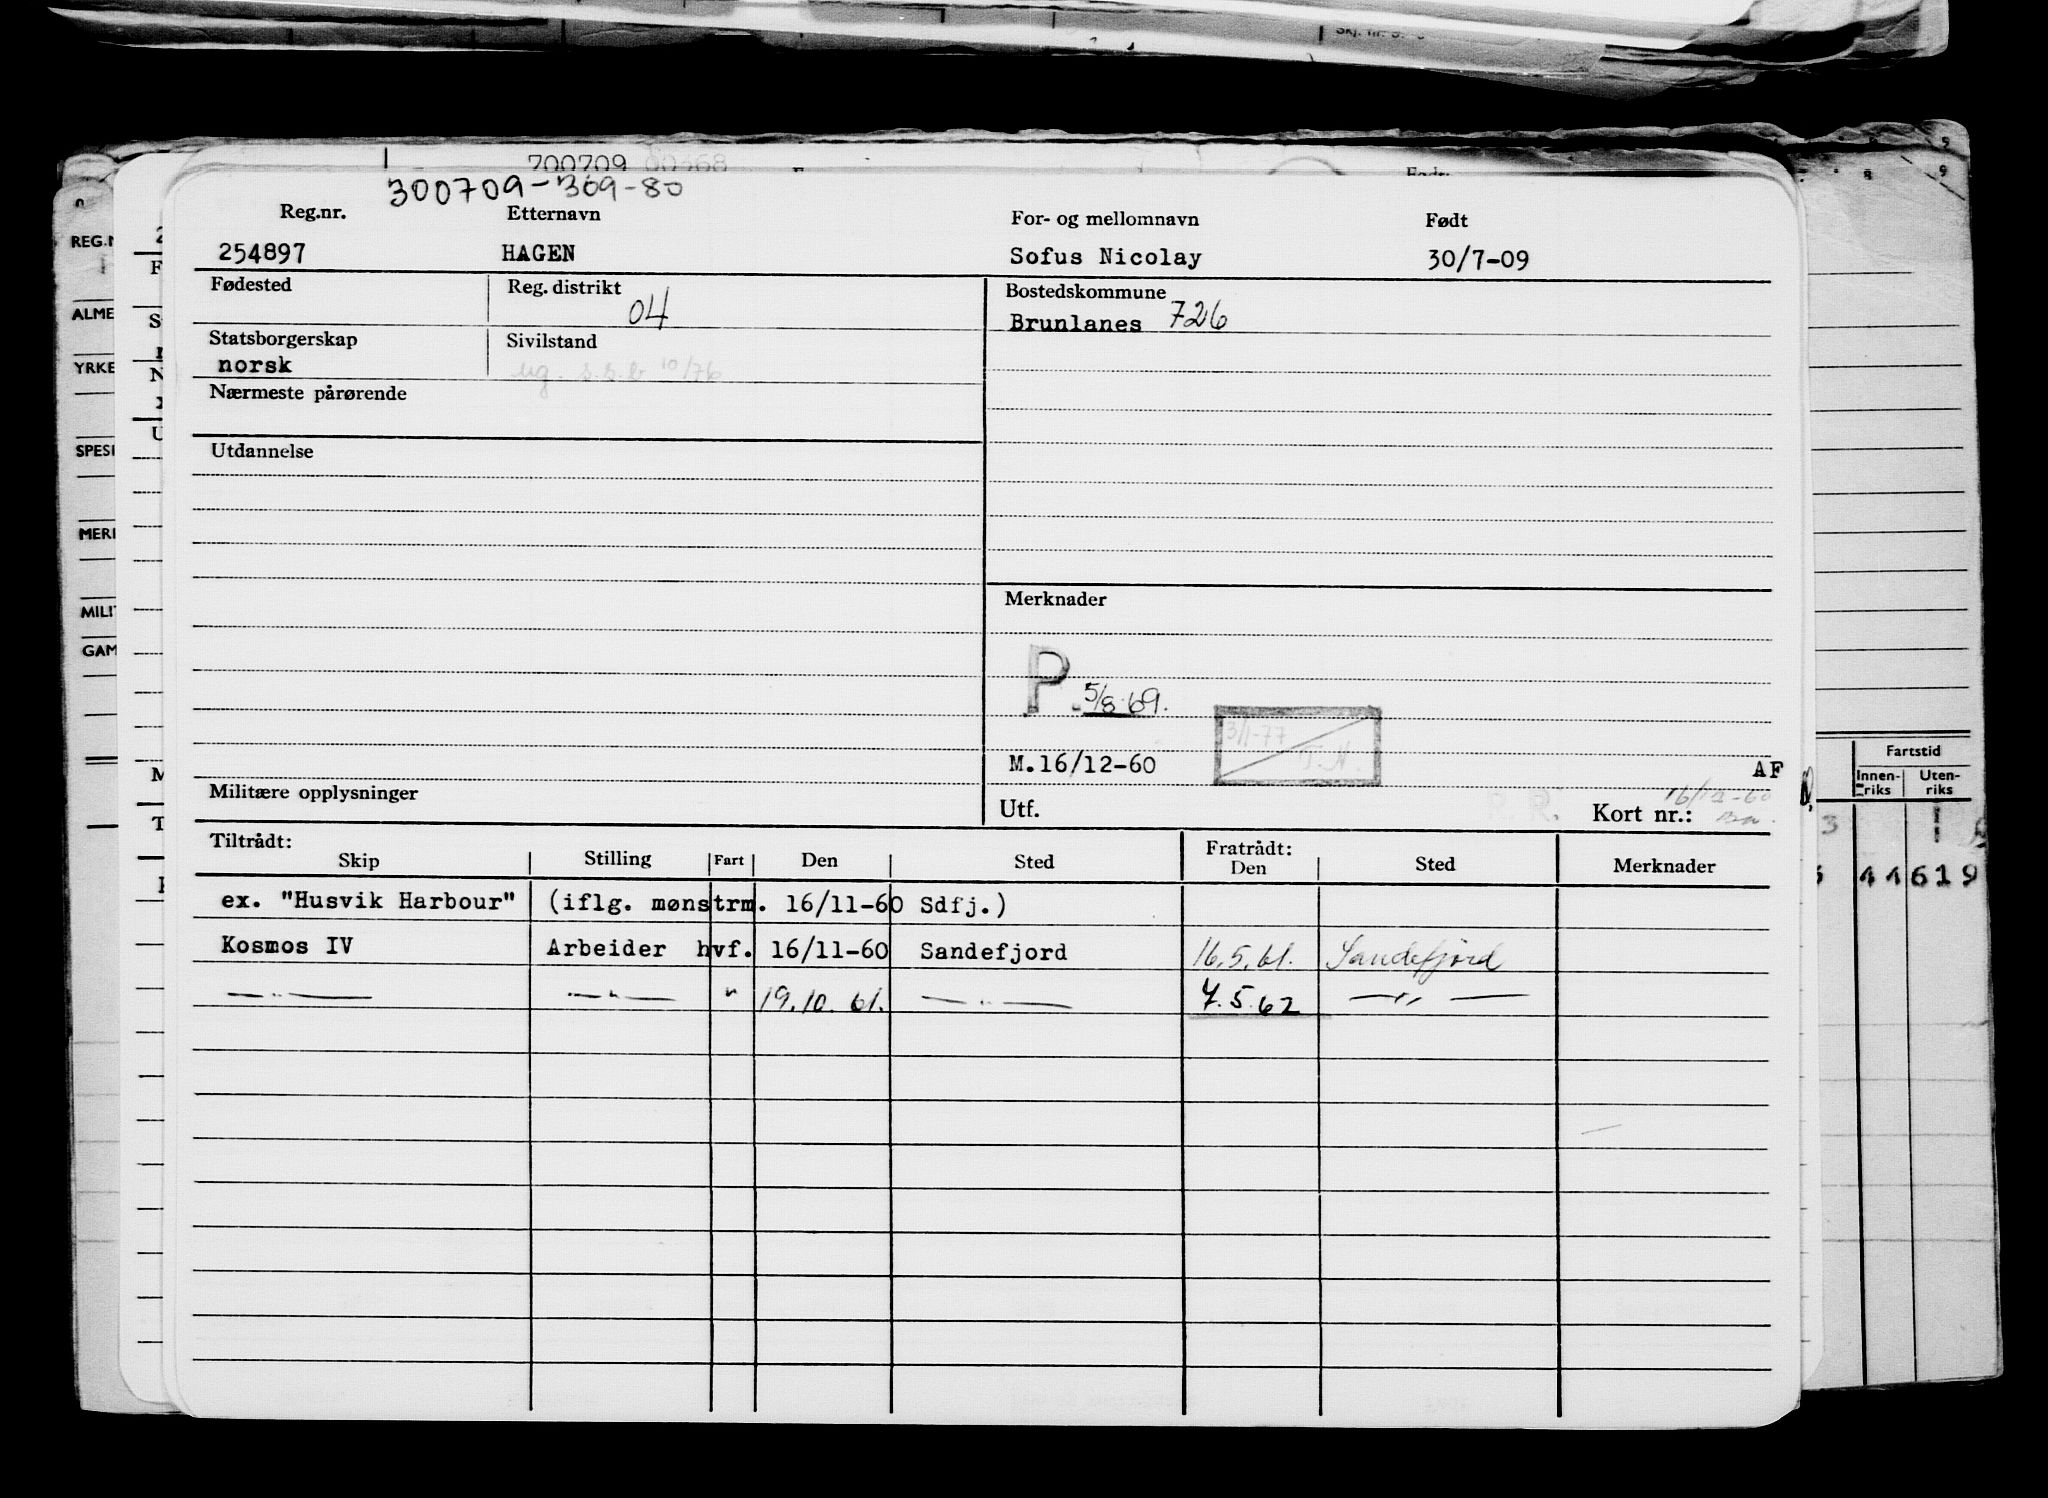 Skj. nr. 5.
700709 00368
300709-369-80
Reg.nr. Etternavn For- og mellomnavn Født
254897 HAGEN Sofus Nicolay 30/7-09
Fødested Reg. distrikt Bostedskommune
04 Brunlanes 726
Statsborgerskap Sivilstand
norsk ug. s.s.b 10/76
Nærmeste pårørende
Utdannelse
Merknader
P. 5/8.69.
3/1-77
T.N.
M.16/12-60 AF
Militære opplysninger Utf. R. R. Kort nr.: 16/12-60
Tiltrådt: Fratrådt:
Skip Stilling Fart Den Sted Den Sted Merknader
ex. "Husvik Harbour" (iflg. mønstrm. 16/11-60 Sdfj.)
Kosmos IV Arbeider hvf. 16/11-60 Sandefjord 16.5.61. Sandefjord
—"— —"— " 19.10.61. —"— 7.5.62 —"—
REG.N
ALME
YRKE
SPESI
MERI
MILIT
GAM
Fartstid
Innen-riks Uten-riks
44 619